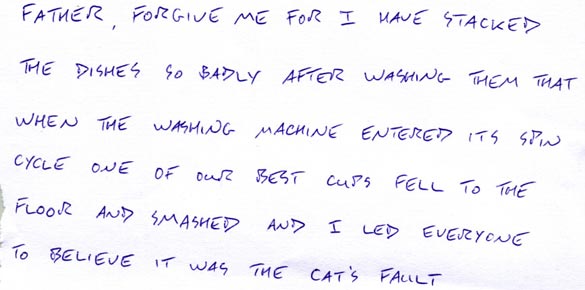 FATHER, FORGIVE ME FOR I HAVE STACKED
THE DISHES SO BADLY AFTER WASHING THEM THAT
WHEN THE WASHING MACHINE ENTERED ITS SPIN
CYCLE ONE OF OUR BEST CUPS FELL TO THE
FLOOR AND SMASHED AND I LED EVERYONE
TO BELIEVE IT WAS THE CAT'S FAULT